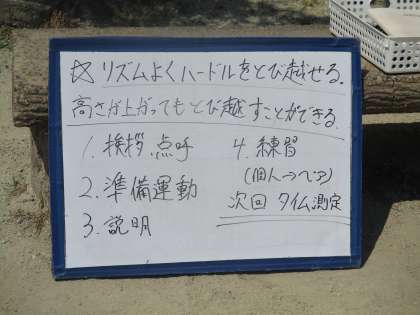 ☆ リズムよくハードルをとび越せる。
高さが上がってもとび越すことができる。
1. 挨拶、点呼
2. 準備運動
3. 説明
4. 練習
(個人→ペア)
次回 タイム測定